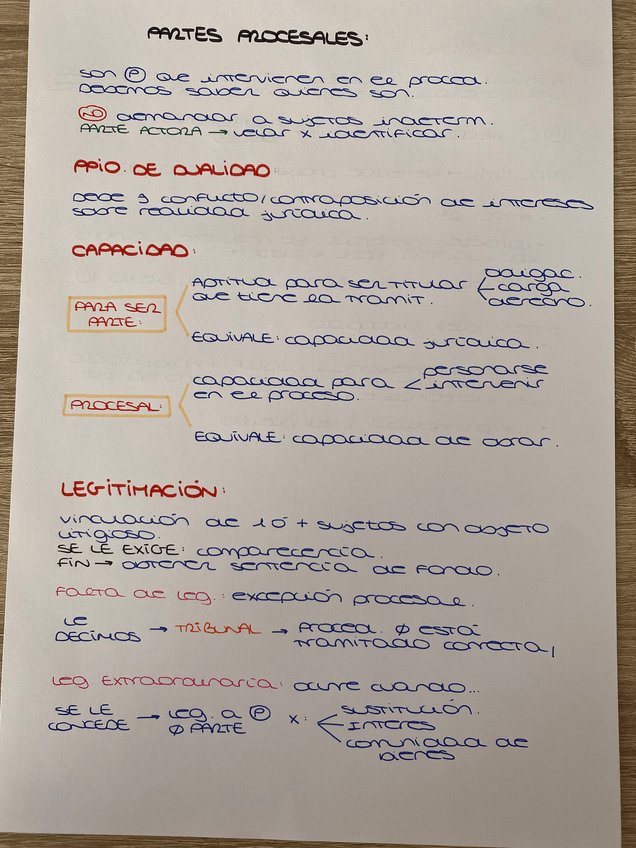 PARTES PROCESALES:
son Ⓟ que intervienen en el proced.
Debemos saber quienes son.
NO demandar a sujetos indeterm.
PARTE ACTORA → velar x identificar.
PPIO. DE DUALIDAD:
Debe ∃ conflicto/contraposición de intereses
sobre realidad jurídica.
CAPACIDAD:
PARA SER
PARTE:
APTITUD para ser TITULAR
obligac.
carga
derecho.
que tiene la tramit.
EQUIVALE: capacidad jurídica.
PROCESAL:
capacidad para
personarse
intervenir
en el proceso.
EQUIVALE: capacidad de obrar.
LEGITIMACIÓN:
vinculación de 1 ó + sujetos con objeto
litigioso.
SE LE EXIGE: comparecencia.
FIN → obtener sentencia de fondo.
Falta de leg.: excepción procesal.
LE
DECIMOS → TRIBUNAL → proced. Ø está
tramitado correcta,
Leg Extraordinaria: ocurre cuando...
SE LE
CONCEDE → Leg. a Ⓟ
Ø PARTE
x:
sustitución.
INTERES
comunidad de
bienes